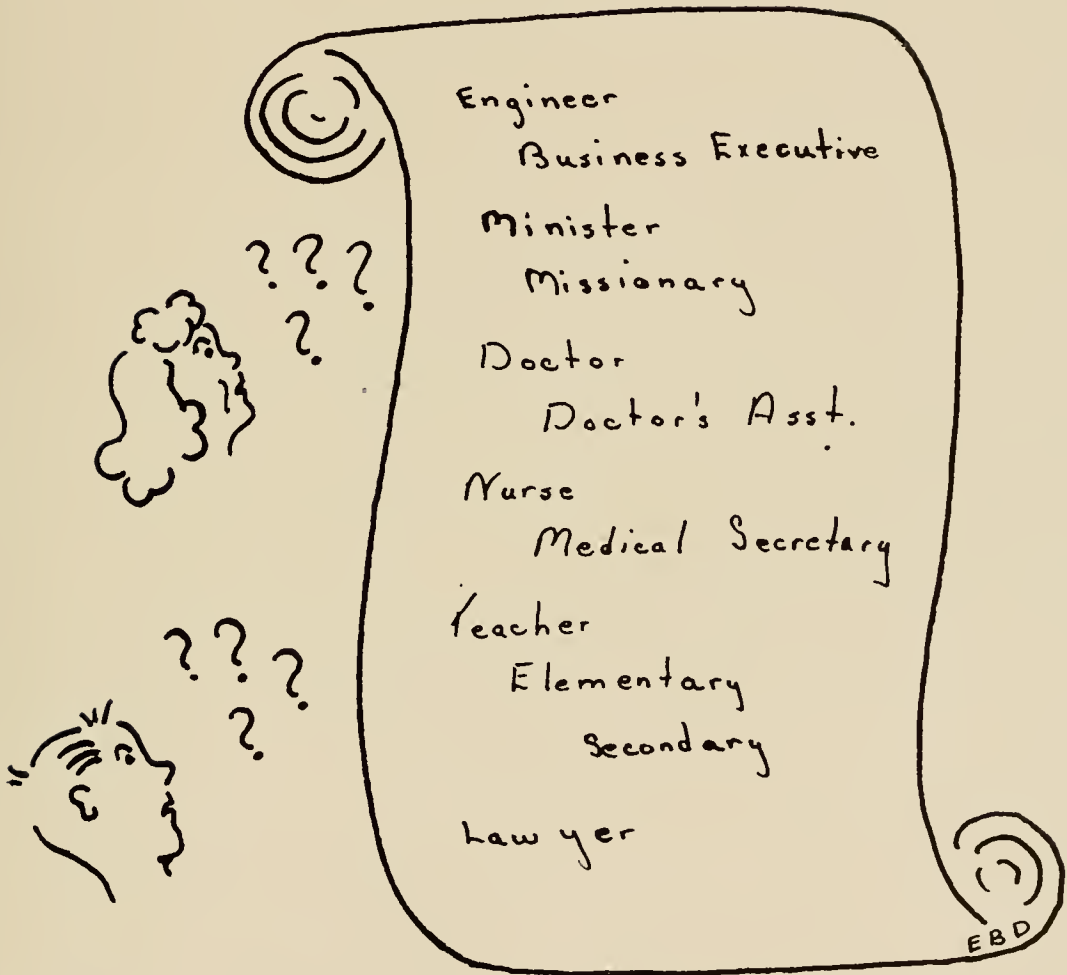 ? ? ?
?
? ?
?
?
Engineer
Business Executive
Minister
Missionary
Doctor
Doctor's Asst.
Nurse
Medical Secretary
Teacher
Elementary
Secondary
Lawyer
EBD